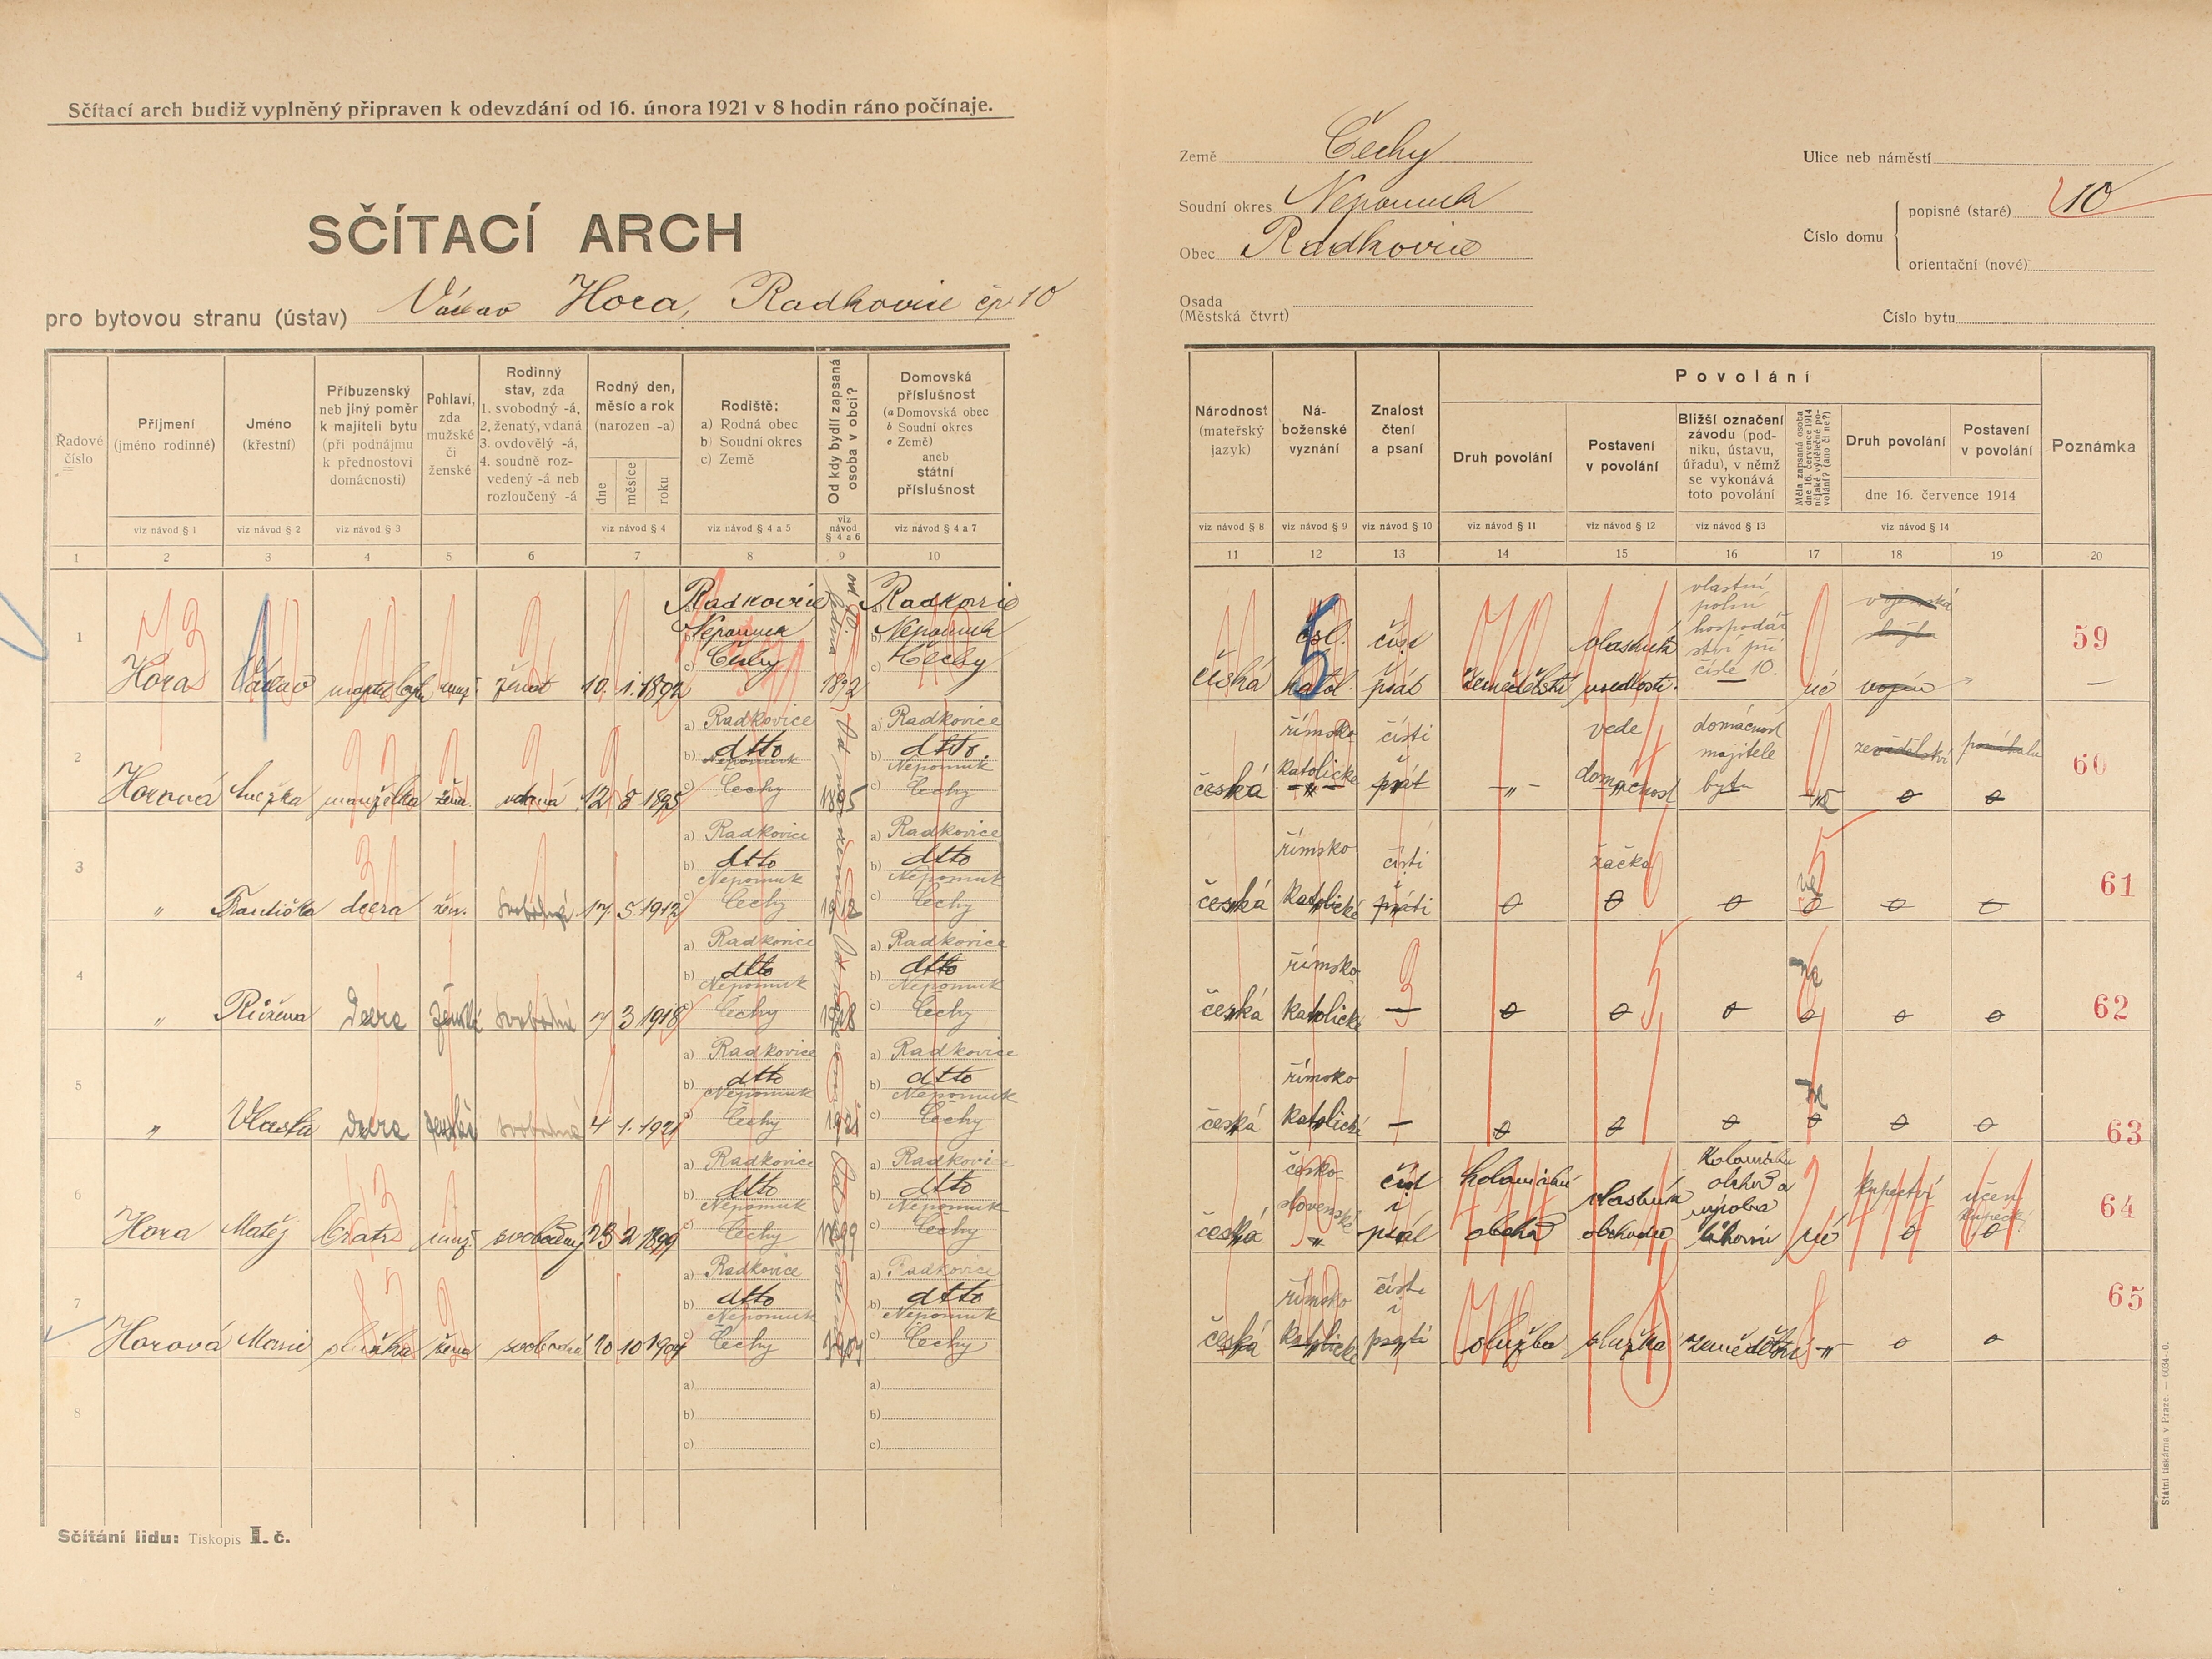 Sčítací arch budiž vyplněný připraven k odevzdání od 16. února 1921 v 8 hodin ráno počínaje.
SČÍTACÍ ARCH
pro bytovou stranu (ústav) Václav Hora, Radkovice čp. 10
Země Čechy
Soudní okres Nepomuk
Obec Radkovice
Osada
(Městská čtvrť)
Ulice neb náměstí
Číslo domu
popisné (staré) 10
orientační (nové)
Číslo bytu
Řadové číslo
Příjmení (jméno rodinné)
Jméno (křestní)
Příbuzenský neb jiný poměr k majiteli bytu (při podnájmu k přednostovi domácnosti)
Pohlaví, zda mužské či ženské
Rodinný stav, zda 1. svobodný -á, 2. ženatý, vdaná 3. ovdovělý -á, 4. soudně rozvedený -á neb rozloučený -á
Rodný den, měsíc a rok (narozen -a)
dne měsíce roku
Rodiště: a) Rodná obec b) Soudní okres c) Země
Od kdy bydlí zapsaná osoba v obci?
Domovská příslušnost (a Domovská obec b Soudní okres c Země) aneb státní příslušnost
viz návod § 1 viz návod § 2 viz návod § 3 viz návod § 4 viz návod § 4 a 5 viz návod § 4 a 6 viz návod § 4 a 7
1 2 3 4 5 6 7 8 9 10
Národnost (mateřský jazyk)
Náboženské vyznání
Znalost čtení a psaní
Povolání
Druh povolání
Postavení v povolání
Bližší označení závodu (podniku, ústavu, úřadu), v němž se vykonává toto povolání
Měla zapsaná osoba dne 16. července 1914 nějaké výdělečné povolání? (ano či ne?)
Druh povolání
Postavení v povolání
dne 16. července 1914
Poznámka
viz návod § 8 viz návod § 9 viz návod § 10 viz návod § 11 viz návod § 12 viz návod § 13 viz návod § 14
11 12 13 14 15 16 17 18 19 20
1 Hora Václav majitel bytu muž. ženat 10. 1. 1892
a) Radkovice b) Nepomuk c) Čechy
1892
a) Radkovice b) Nepomuk c) Čechy
česká čsl. katol. číst psát zemědělství vlastník usedlosti.
vlastní polní hospodářství při čísle 10.
59
2 Horová Anežka manželka žena vdaná 12 8 1895
a) Radkovice b) dtto Nepomuk c) Čechy
1895
a) Radkovice b) dtto. Nepomuk c) Čechy
česká římsko katolické čísti psát -„- vede domácnost
domácnost majitele bytu
zemědělství
60
3 „ Františka dcera žen. svobodná 17. 5. 1912
a) Radkovice b) dtto Nepomuk c) Čechy
1912
a) Radkovice b) dtto Nepomuk c) Čechy
česká římsko katolické čísti psáti 0 žačka 0 0 ne 0 0
61
4 „ Růžena dcera ženské svobodná 7 3 1918
a) Radkovice b) dtto Nepomuk c) Čechy
1918
a) Radkovice b) dtto Nepomuk c) Čechy
česká římsko katolické — 0 0 0 ne 0 0
62
5 „ Vlasta dcera ženské svobodná 4 1. 1921
a) Radkovice b) dtto Nepomuk c) Čechy
1921
a) Radkovice b) dtto Nepomuk c) Čechy
česká římsko katolické — 0 0 0 ne 0 0
63
6 Hora Matěj bratr muž. svobodný 23 2 1899
a) Radkovice b) dtto Nepomuk c) Čechy
1899
a) Radkovice b) dtto Nepomuk c) Čechy
česká česko-slovenské číst i psát obchod vlastník obchodu
obchod a výroba
kupectví 0 učeň 0
64
7 Horová Marie služka žena svobodná 20 10 1904
a) Radkovice b) dtto Nepomuk c) Čechy
1904
a) Radkovice b) dtto Nepomuk c) Čechy
česká římsko katolické čísti i psáti služba služka zemědělství -„- 0 0
65
8
a)
b)
c)
a)
b)
c)
Sčítání lidu: Tiskopis I. č.
Státní tiskárna v Praze. — 6034-0.